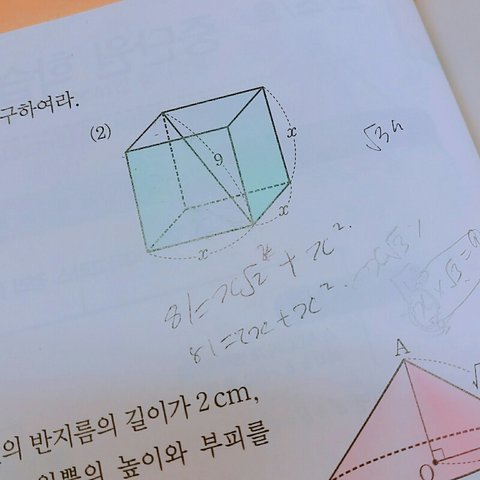 구하여라.
(2)
x
9
x
x
√3a
81=x√2² + x².
81=2x+x².
A
의 반지름의 길이가 2 cm,
높이와 부피를
O